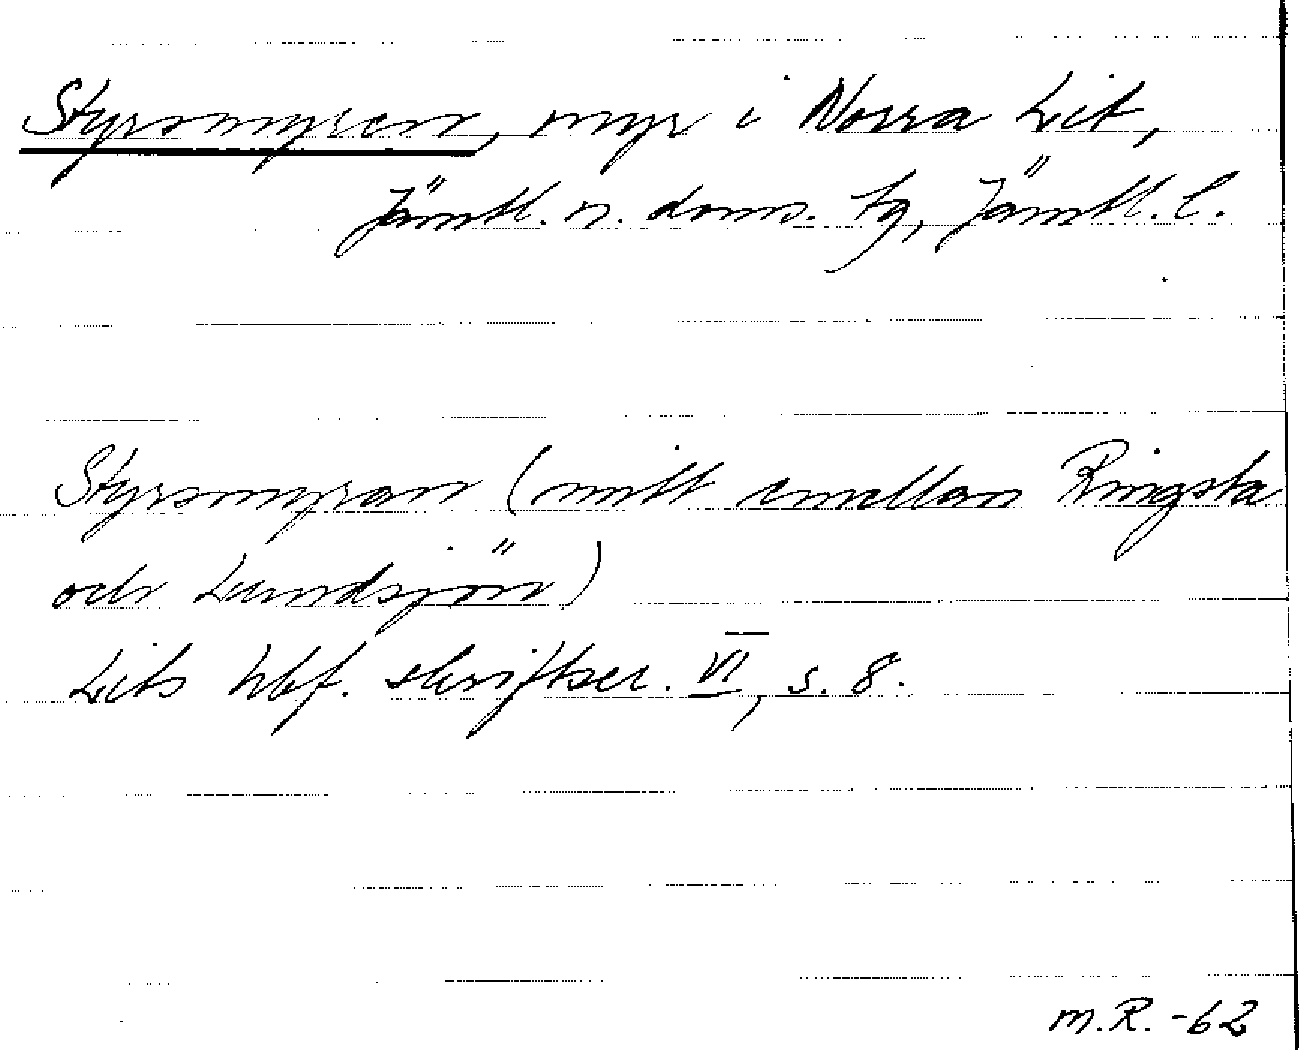 Styrsmyren, myr i Norra Lit,
Jämtl. n. doms. tg, Jämtl. l.
Styrsmyran (mitt emellan Ringsta
och Lundsjön)
Lits hbf. skriftser. VI, s. 8.
M.R. -62